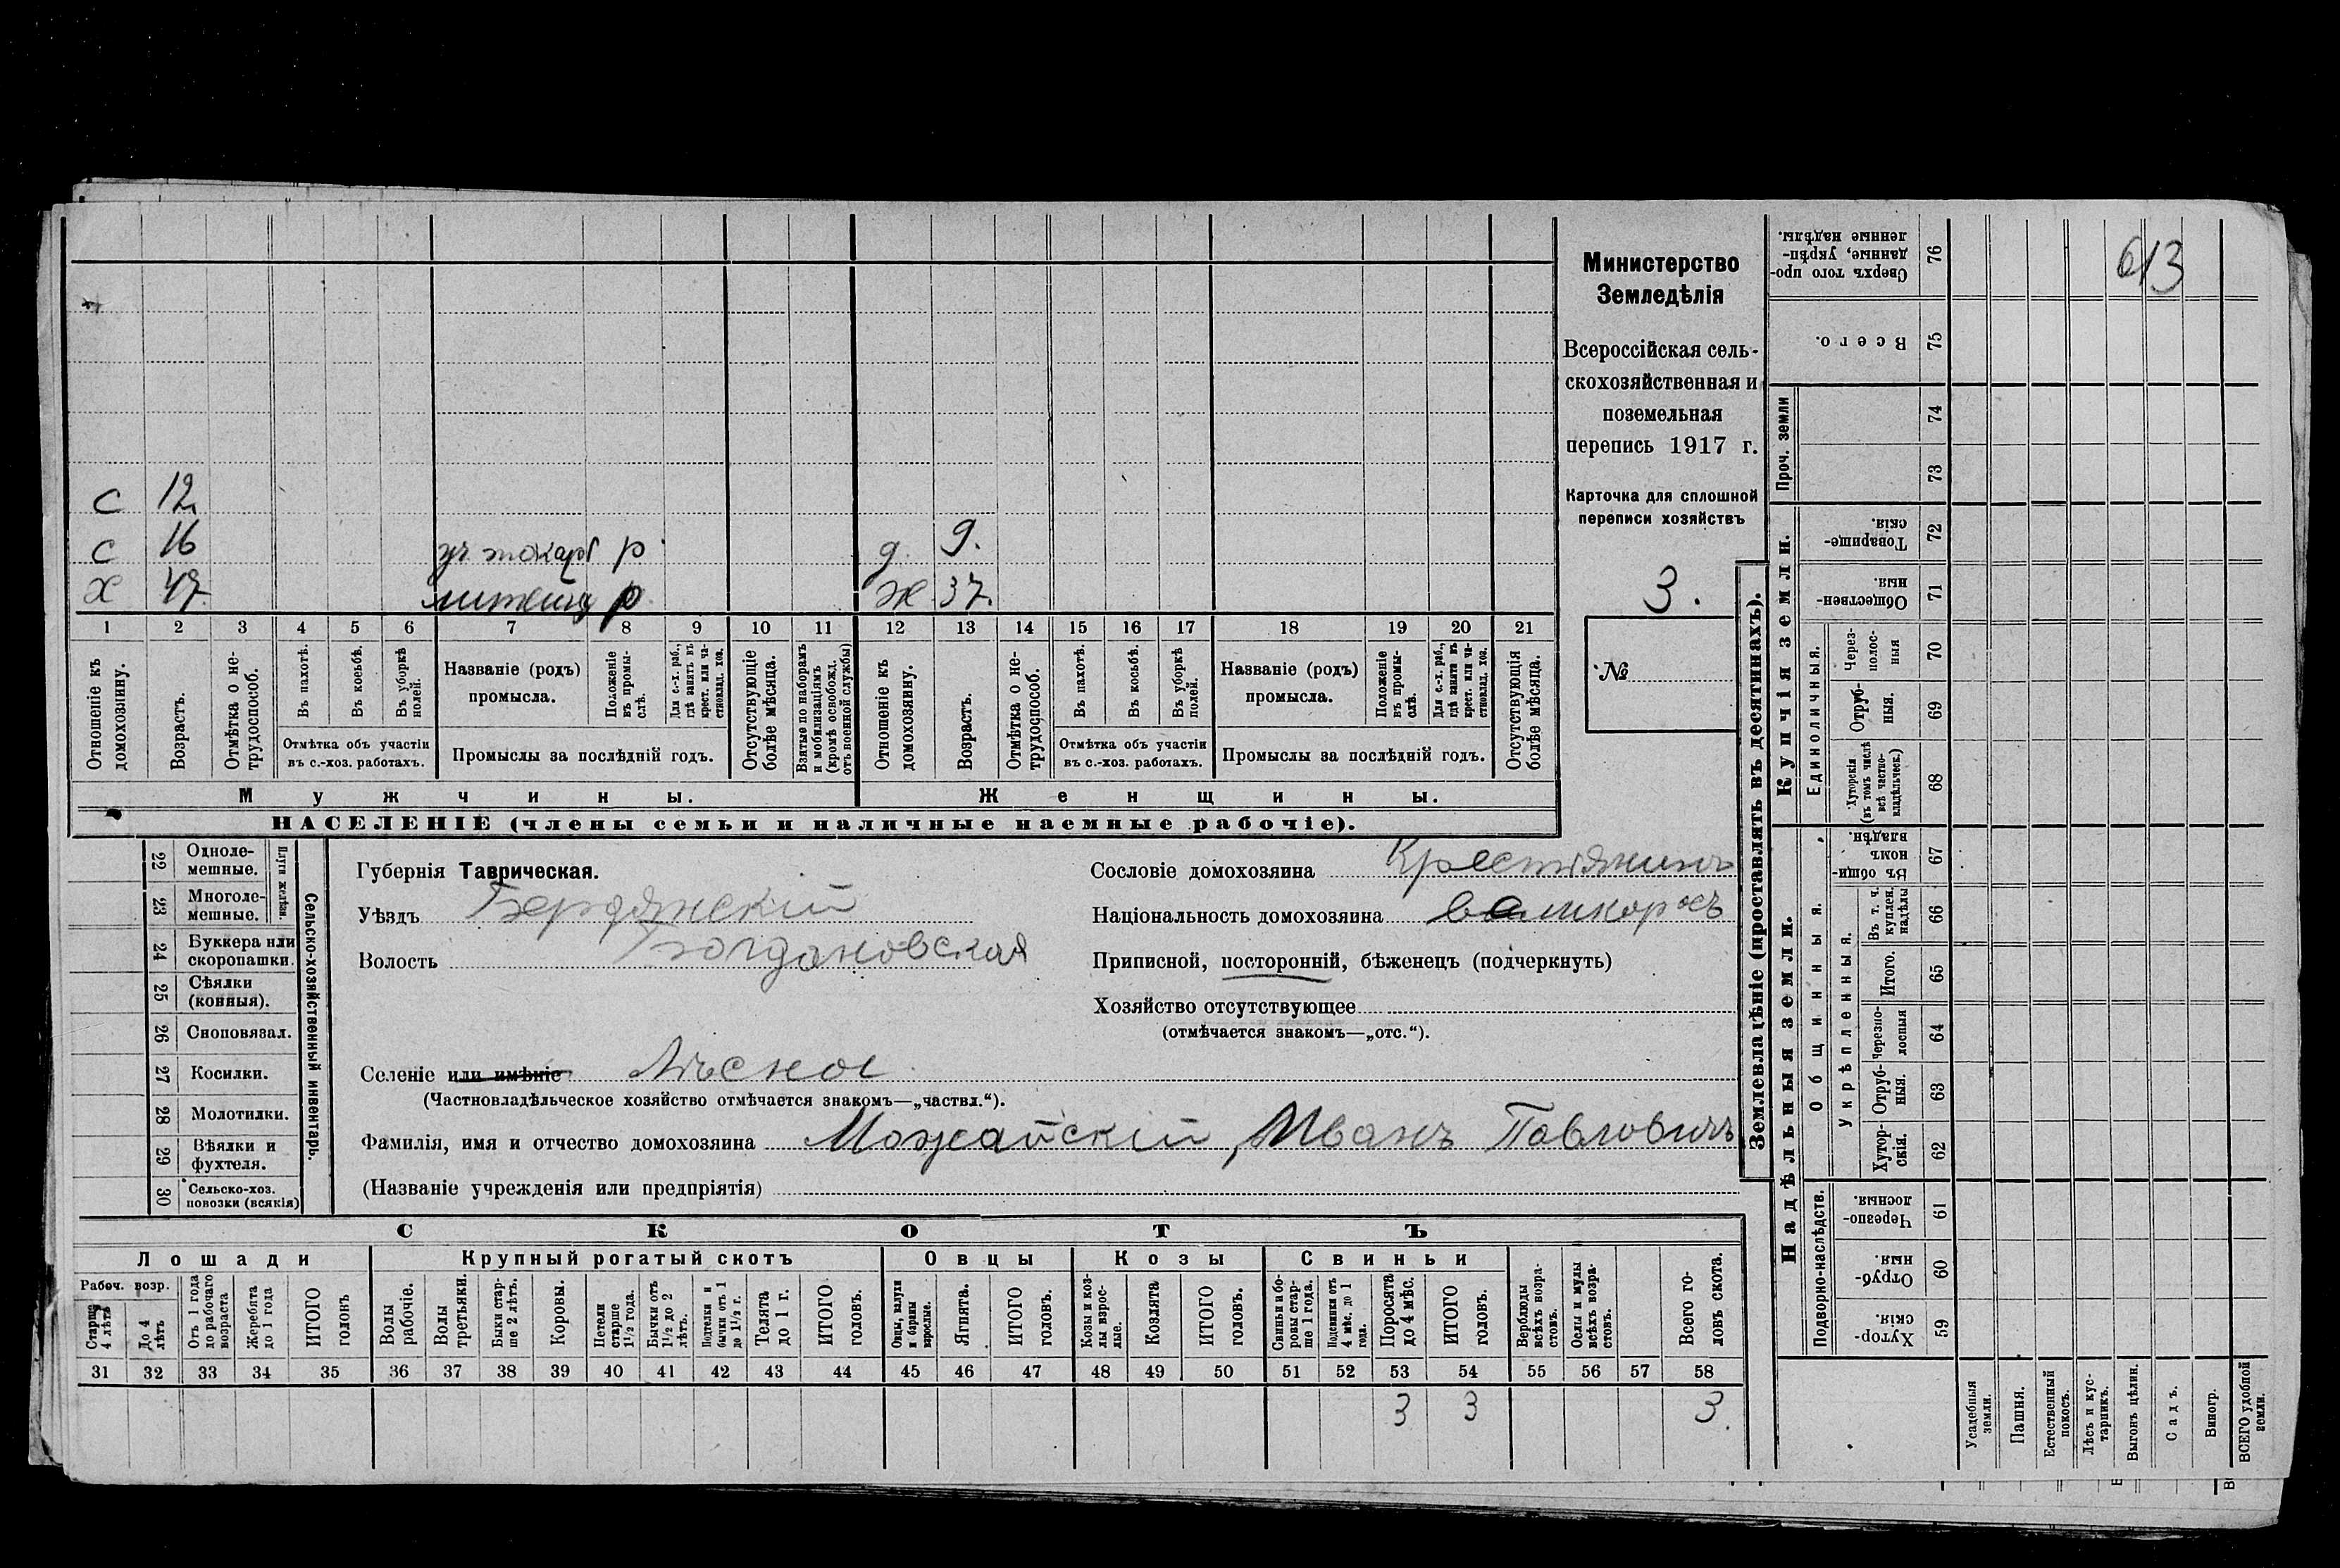 613
Министерство
Земледѣлія
Всероссійская сель-
скохозяйственная и
поземельная
перепись 1917 г.
Карточка для сплошной
переписи хозяйствъ
3.
№
с 12.
с 16 уч токаря р д. 9.
х 47 р ж 37.
1 2 3 4 5 6 7 8 9 10 11 12 13 14 15 16 17 18 19 20 21
Отношеніе къ домохозяину.
Возрастъ.
Отмѣтка о не-трудоспособ.
Въ пахотѣ.
Въ косьбѣ.
Въ уборкѣ полей.
Отмѣтка объ участіи
въ с.-хоз. работахъ.
Названіе (родъ)
промысла.
Положеніе въ промы-слѣ.
Для с.-х. раб., гдѣ занятъ въ крест. или ча-стновлад. хоз.
Промыслы за послѣдній годъ.
Отсутствующіе болѣе мѣсяца.
Взятые по наборамъ и мобилизаціямъ (кромѣ освобожд. отъ военной службы)
Отношеніе къ домохозяину.
Возрастъ.
Отмѣтка о не-трудоспособ.
Въ пахотѣ.
Въ косьбѣ.
Въ уборкѣ полей.
Отмѣтка объ участіи
въ с.-хоз. работахъ.
Названіе (родъ)
промысла.
Положеніе въ промы-слѣ.
Для с.-х. раб., гдѣ занята въ крест. или ча-стновлад. хоз.
Промыслы за послѣдній годъ.
Отсутствующія болѣе мѣсяца.
Мужчины.
Женщины.
НАСЕЛЕНІЕ (члены семьи и наличные наемные рабочіе).
Сельско-хозяйственный инвентарь.
Плуги желѣзн.
22 Одноле-мешные.
23 Многоле-мешные.
24 Буккера или скоропашки.
25 Сѣялки (конныя).
26 Сноповязал.
27 Косилки.
28 Молотилки.
29 Вѣялки и фухтеля.
30 Сельско-хоз. повозки (всякія)
Губернія Таврическая.
Уѣздъ Бердянскій
Волость Богдановская
Селеніе или имѣніе Лѣсное
(Частновладѣльческое хозяйство отмѣчается знакомъ—„частвл.“).
Фамилія, имя и отчество домохозяина Можайскій, Иванъ Павловичъ
(Названіе учрежденія или предпріятія)
Сословіе домохозяина Крестьянинъ
Національность домохозяина великоросъ
Приписной, посторонній, бѣженецъ (подчеркнуть)
Хозяйство отсутствующее
(отмѣчается знакомъ—„отс.“).
СКОТЪ
Лошади
Крупный рогатый скотъ
Овцы
Козы
Свиньи
Рабоч. возр.
Старше 4 лѣтъ
До 4 лѣтъ
Отъ 1 года до рабочаго возраста
Жеребята до 1 года
ИТОГО головъ
Волы рабочіе.
Волы третьяки.
Быки стар-ше 2 лѣтъ.
Коровы.
Нетели старше 1½ года.
Бычки отъ 1½ до 2 лѣтъ.
Подтелки и бычки отъ 1 до 1½ г.
Телята до 1 г.
ИТОГО головъ.
Овцы, валухи и бараны взрослые.
Ягнята.
ИТОГО головъ.
Козы и коз-лы взрос-лые.
Козлята
ИТОГО головъ.
Свиньи и бо-ровы стар-ше 1 года.
Подсвинки отъ 4 мѣс. до 1 года.
Поросята до 4 мѣс.
ИТОГО головъ.
Верблюды всѣхъ возра-стовъ.
Ослы и мулы всѣхъ возра-стовъ.
Всего го-ловъ скота.
31 32 33 34 35 36 37 38 39 40 41 42 43 44 45 46 47 48 49 50 51 52 53 54 55 56 57 58
3 3 3.
Землевладѣніе (проставлять въ десятинахъ).
Купчія земли.
Надѣльныя земли.
Проч. земли
Единоличныя.
Общинныя.
Укрѣпленныя.
Подворно-наслѣдств.
76 Сверхъ того про-данные, укрѣп-ленные надѣлы.
75 Всего.
74
73
72 Товарище-скія.
71 Обществен-ныя.
70 Через-полос-ныя
69 Отруб-ныя.
68 Хуторскія (въ томъ числѣ всѣ частно-владѣльческ.)
67 Въ общи-номъ владѣн.
66 Въ т. ч. куплен. надѣлы
65 Итого.
64 Черезпо-лосныя
63 Отруб-ныя.
62 Хутор-скія.
61 Черезпо-лосныя.
60 Отруб-ныя.
59 Хутор-скія.
Усадебныя земли.
Пашня.
Естественный покосъ.
Лѣсъ и кус-тарникъ.
Выгонъ цѣлин.
Садъ.
Виногр.
ВСЕГО удобной земли.